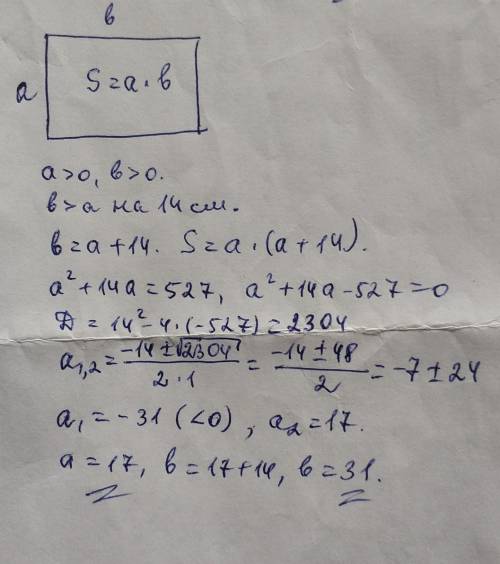 в
a
S=a·в
a>0, в>0.
в>a на 14 см.
в=a+14. S=a·(a+14).
a²+14a=527, a²+14a-527=0
Д=14²-4·(-527)=2304
a₁,₂=(-14±√2304)/(2·1)=(-14±48)/2=-7±24
a₁=-31 (<0), a₂=17.
a=17, в=17+14, в=31.